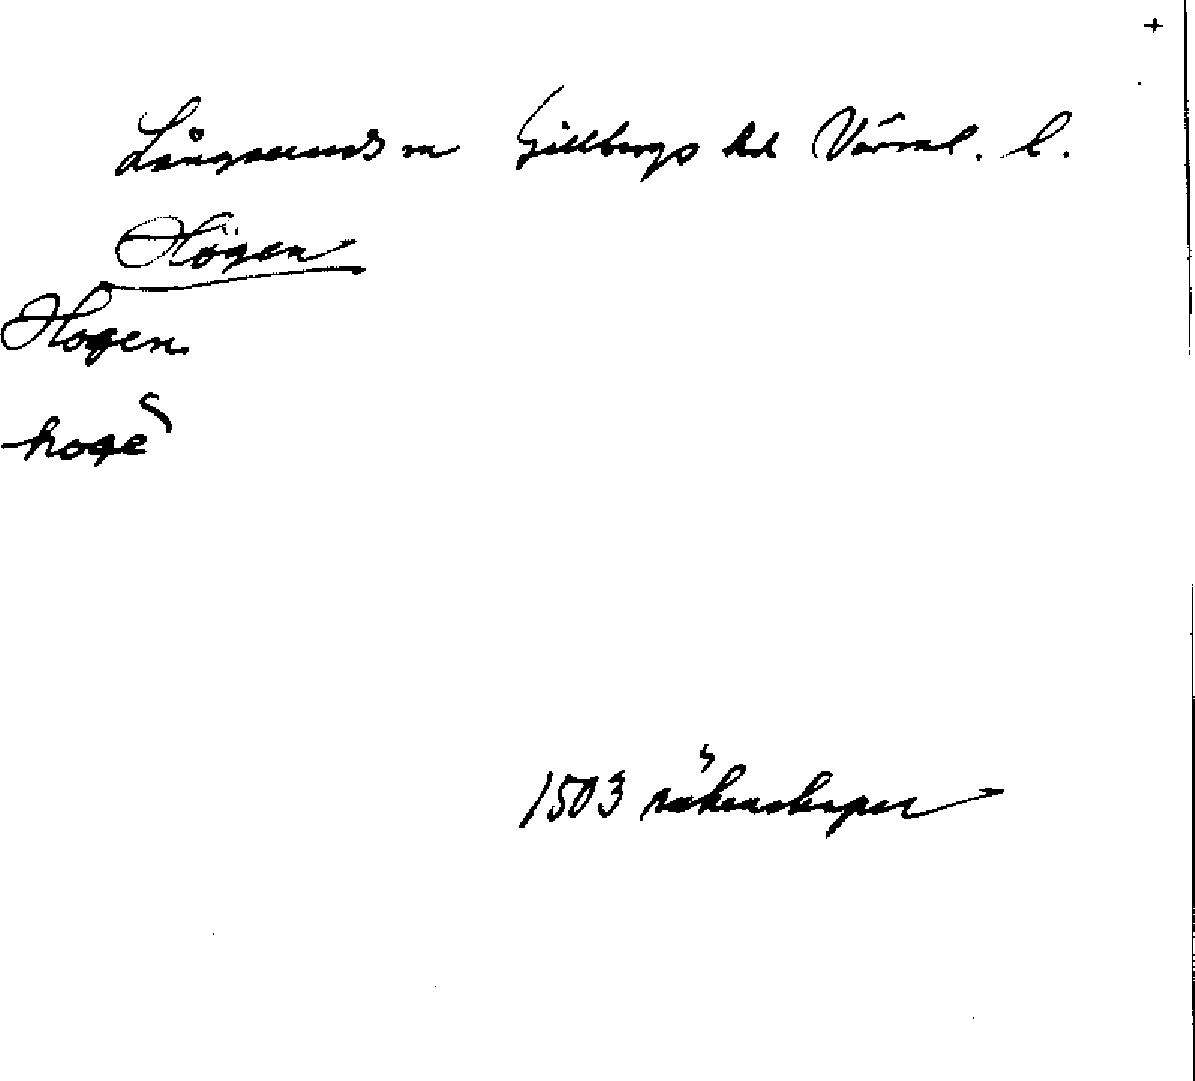 Långserud sn Gillbergs hd Värml. l.
Högen
Hogen
hoge
1503 räkenskaper